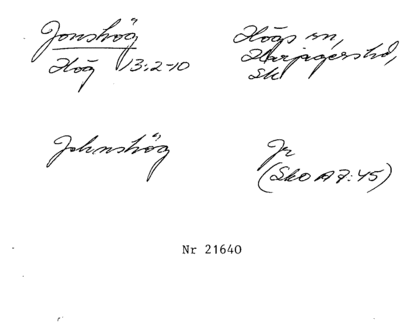 Jonshög
Hög 13:2-10
Högs sn,
Harjagers hd,
Sk
Johnshög
Jr
(SkO A 7:45)
Nr 21640